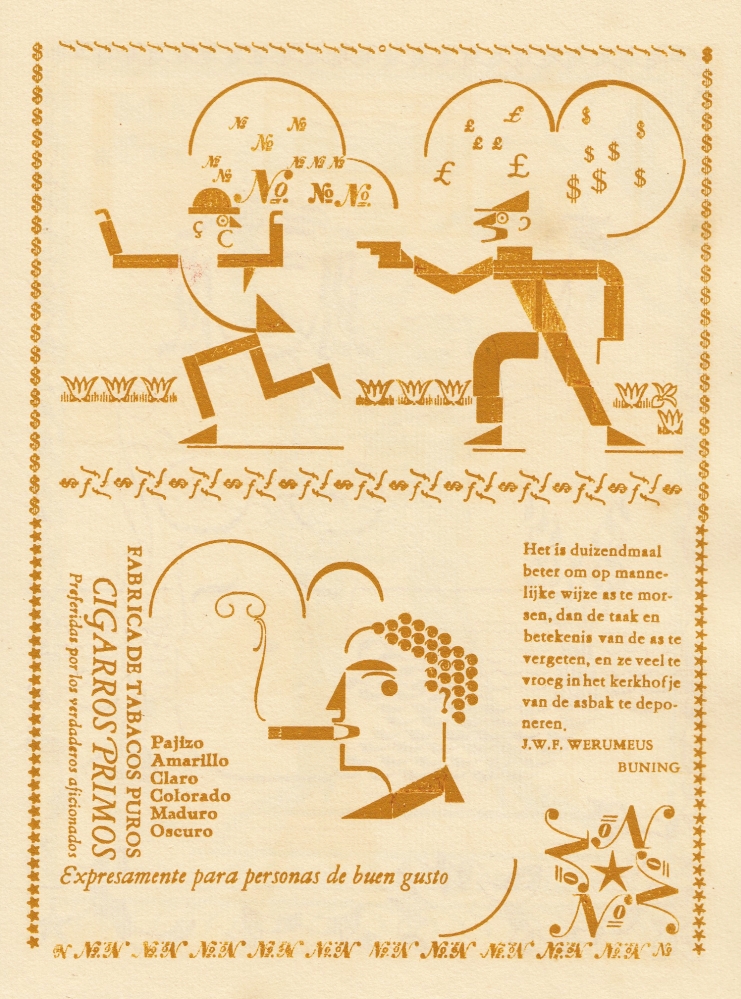 № №
№
№ № № №
№ № № №
£ £
£ £
£ £
$ $
$ $
$ $ $
FABRICA DE TABACOS PUROS
CIGARROS PRIMOS
Preferidas por los verdaderos aficionados
Pajizo
Amarillo
Claro
Colorado
Maduro
Oscuro
Expresamente para personas de buen gusto
Het is duizendmaal
beter om op manne-
lijke wijze as te mor-
sen, dan de taak en
betekenis van de as te
vergeten, en ze veel te
vroeg in het kerkhofje
van de asbak te depo-
neren.
J.W.F. WERUMEUS
BUNING